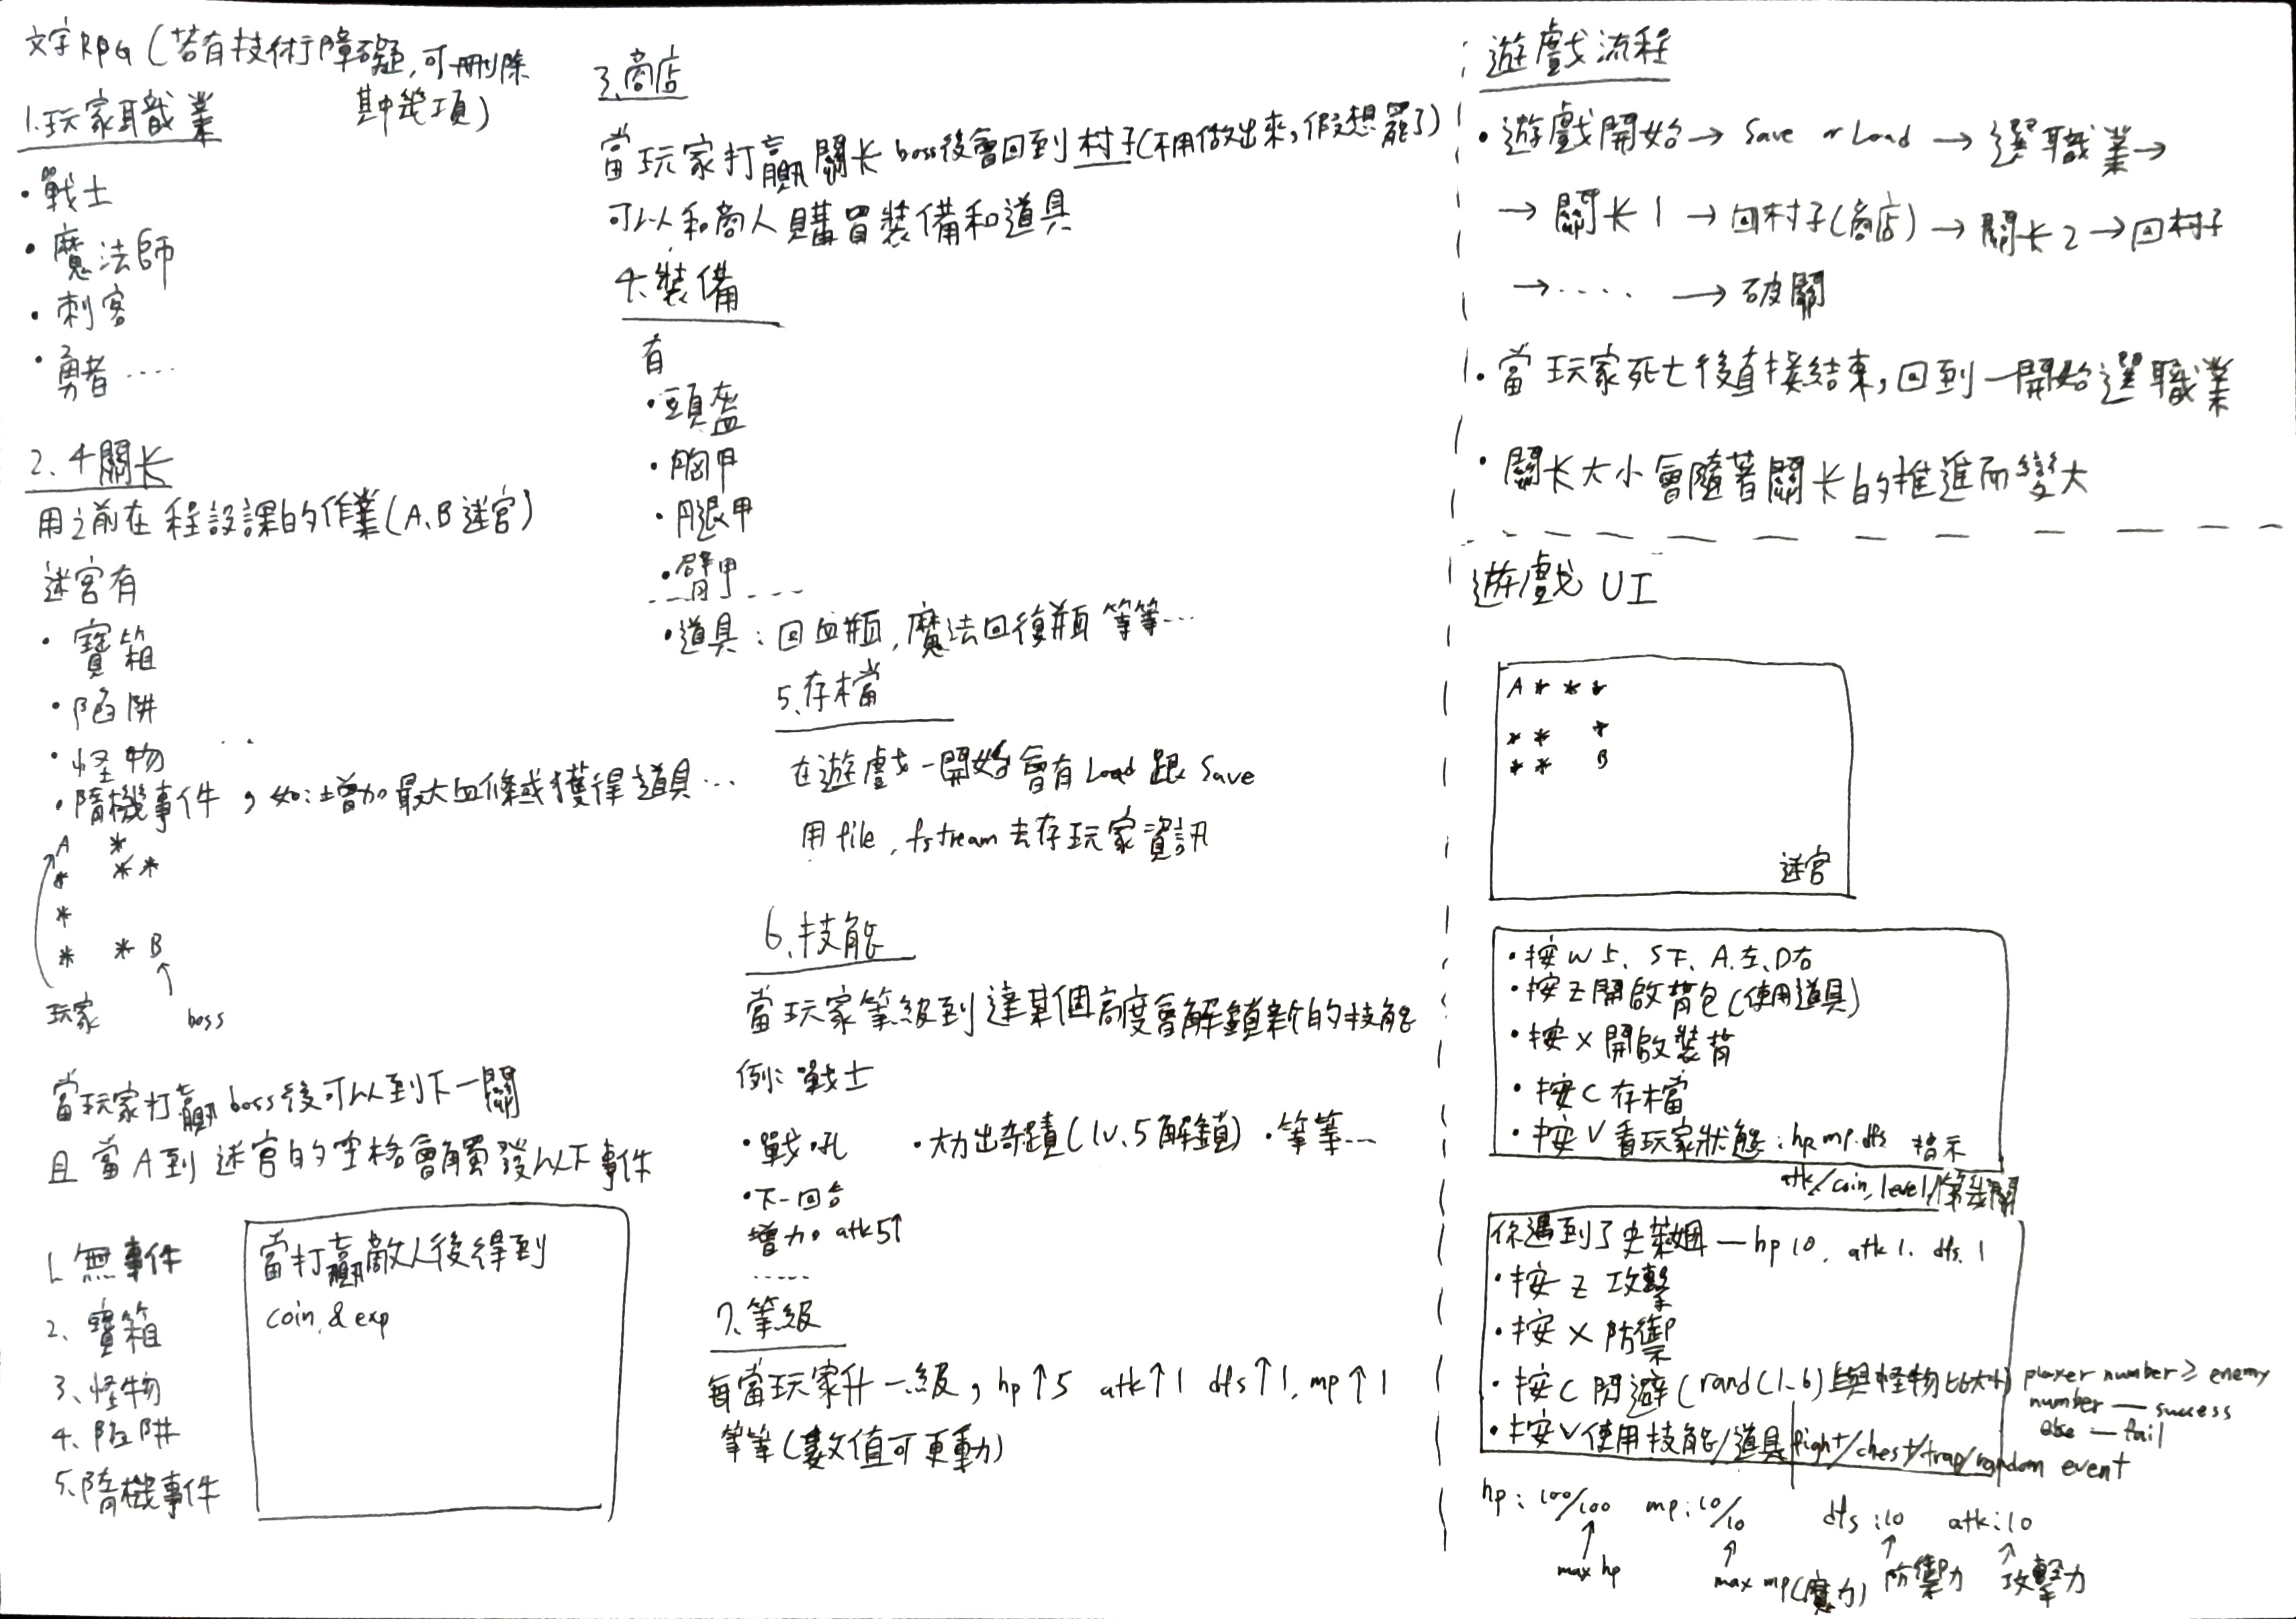 文字RPG(若有技術障礙,可刪除
其中幾項)
1.玩家職業
•戰士
•魔法師
•刺客
•勇者....
2、4關卡
用之前在程設課的作業(A、B迷宮)
迷宮有
•寶箱
•陷阱
•怪物
•隨機事件,如:增加最大血條或獲得道具...
A *
* * *
*
* * B
玩家 boss
當玩家打贏boss後可以到下一關
且當A到迷宮的空格會觸發以下事件
1、無事件
2、寶箱
3、怪物
4、陷阱
5、隨機事件
當打贏敵人後得到
coin,&exp
3、商店
當玩家打贏關卡boss後會回到村子(不用做出來,假想罷了)
可以和商人購買裝備和道具
4、裝備
有
•頭盔
•胸甲
•腿甲
•臂甲
•道具:回血瓶,魔法回復瓶等等...
5、存檔
在遊戲一開始會有Load跟Save
用file,fstream去存玩家資訊
6、技能
當玩家等級到達某個高度會解鎖新的技能
例:戰士
•戰吼 •大力出奇蹟(lv、5解鎖) •等等...
•下一回合
增加 atk5↑
.....
7、等級
每當玩家升一級,hp↑5 atk↑1 dfs↑1,mp↑1
等等(數值可更動)
遊戲流程
•遊戲開始→Save or Load→選職業→
→關卡1→回村子(商店)→關卡2→回村子
→....→破關
•當玩家死亡後直接結束,回到一開始選職業
•關卡大小會隨著關卡的推進而變大
遊戲UI
A * * *
* * *
* * B
迷宮
•按W上、S下、A、左、D右
•按Z開啟背包(使用道具)
•按X開啟裝背
•按C存檔
•按V看玩家狀態:hp.mp.dfs 指示
atk/coin,level/第幾關
你遇到了史萊姆—hp10,atk1.dfs.1
•按Z攻擊
•按X防禦
•按C閃避(rand(1~6)與怪物比大小) player number≥enemy
number — success
else — fail
•按V使用技能/道具 fight/chest/trap/random event
hp:100/100 mp:10/10 dfs:10 atk:10
max hp max mp(魔力) 防禦力 攻擊力